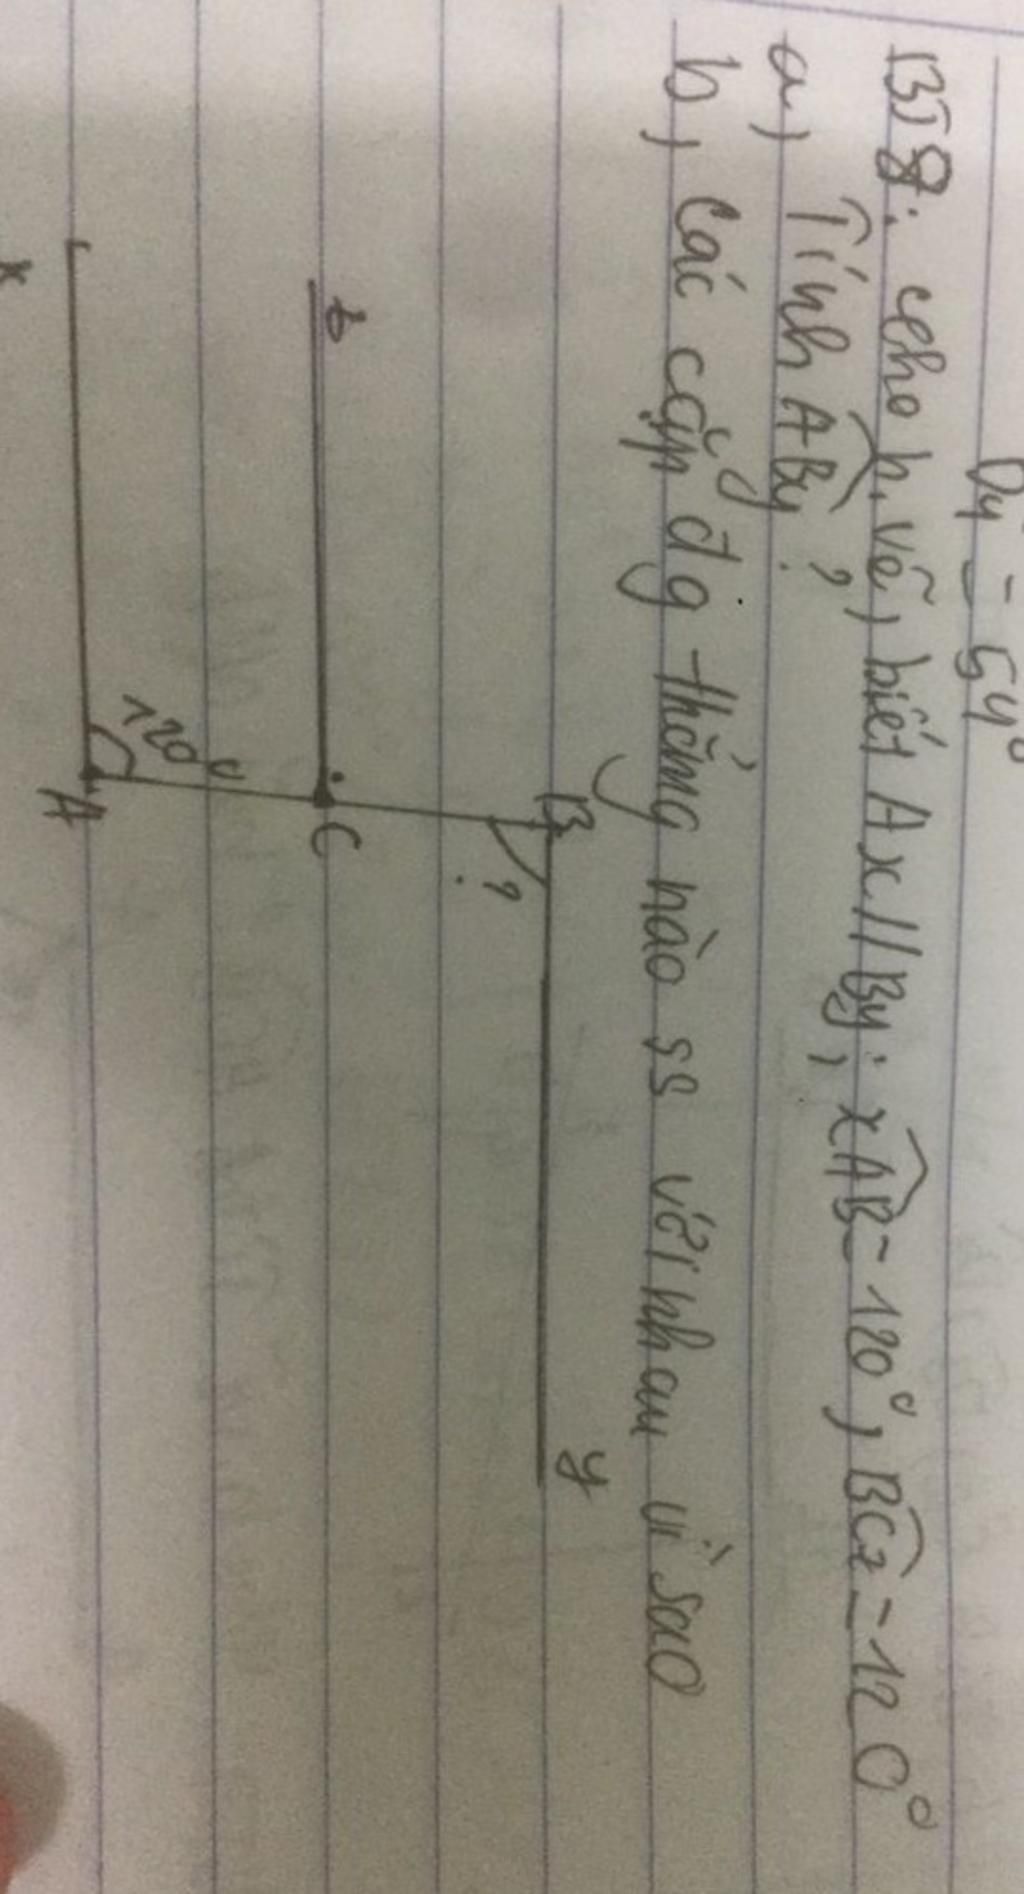 Dy = 54°
BT8: cho h.vẽ, biết Ax//By; xAB = 120°, BCz = 120°
a) Tính ABy ?
b, Các cặp đg thẳng nào ss với nhau vì sao
B
y
?
z
C
120°
x
A